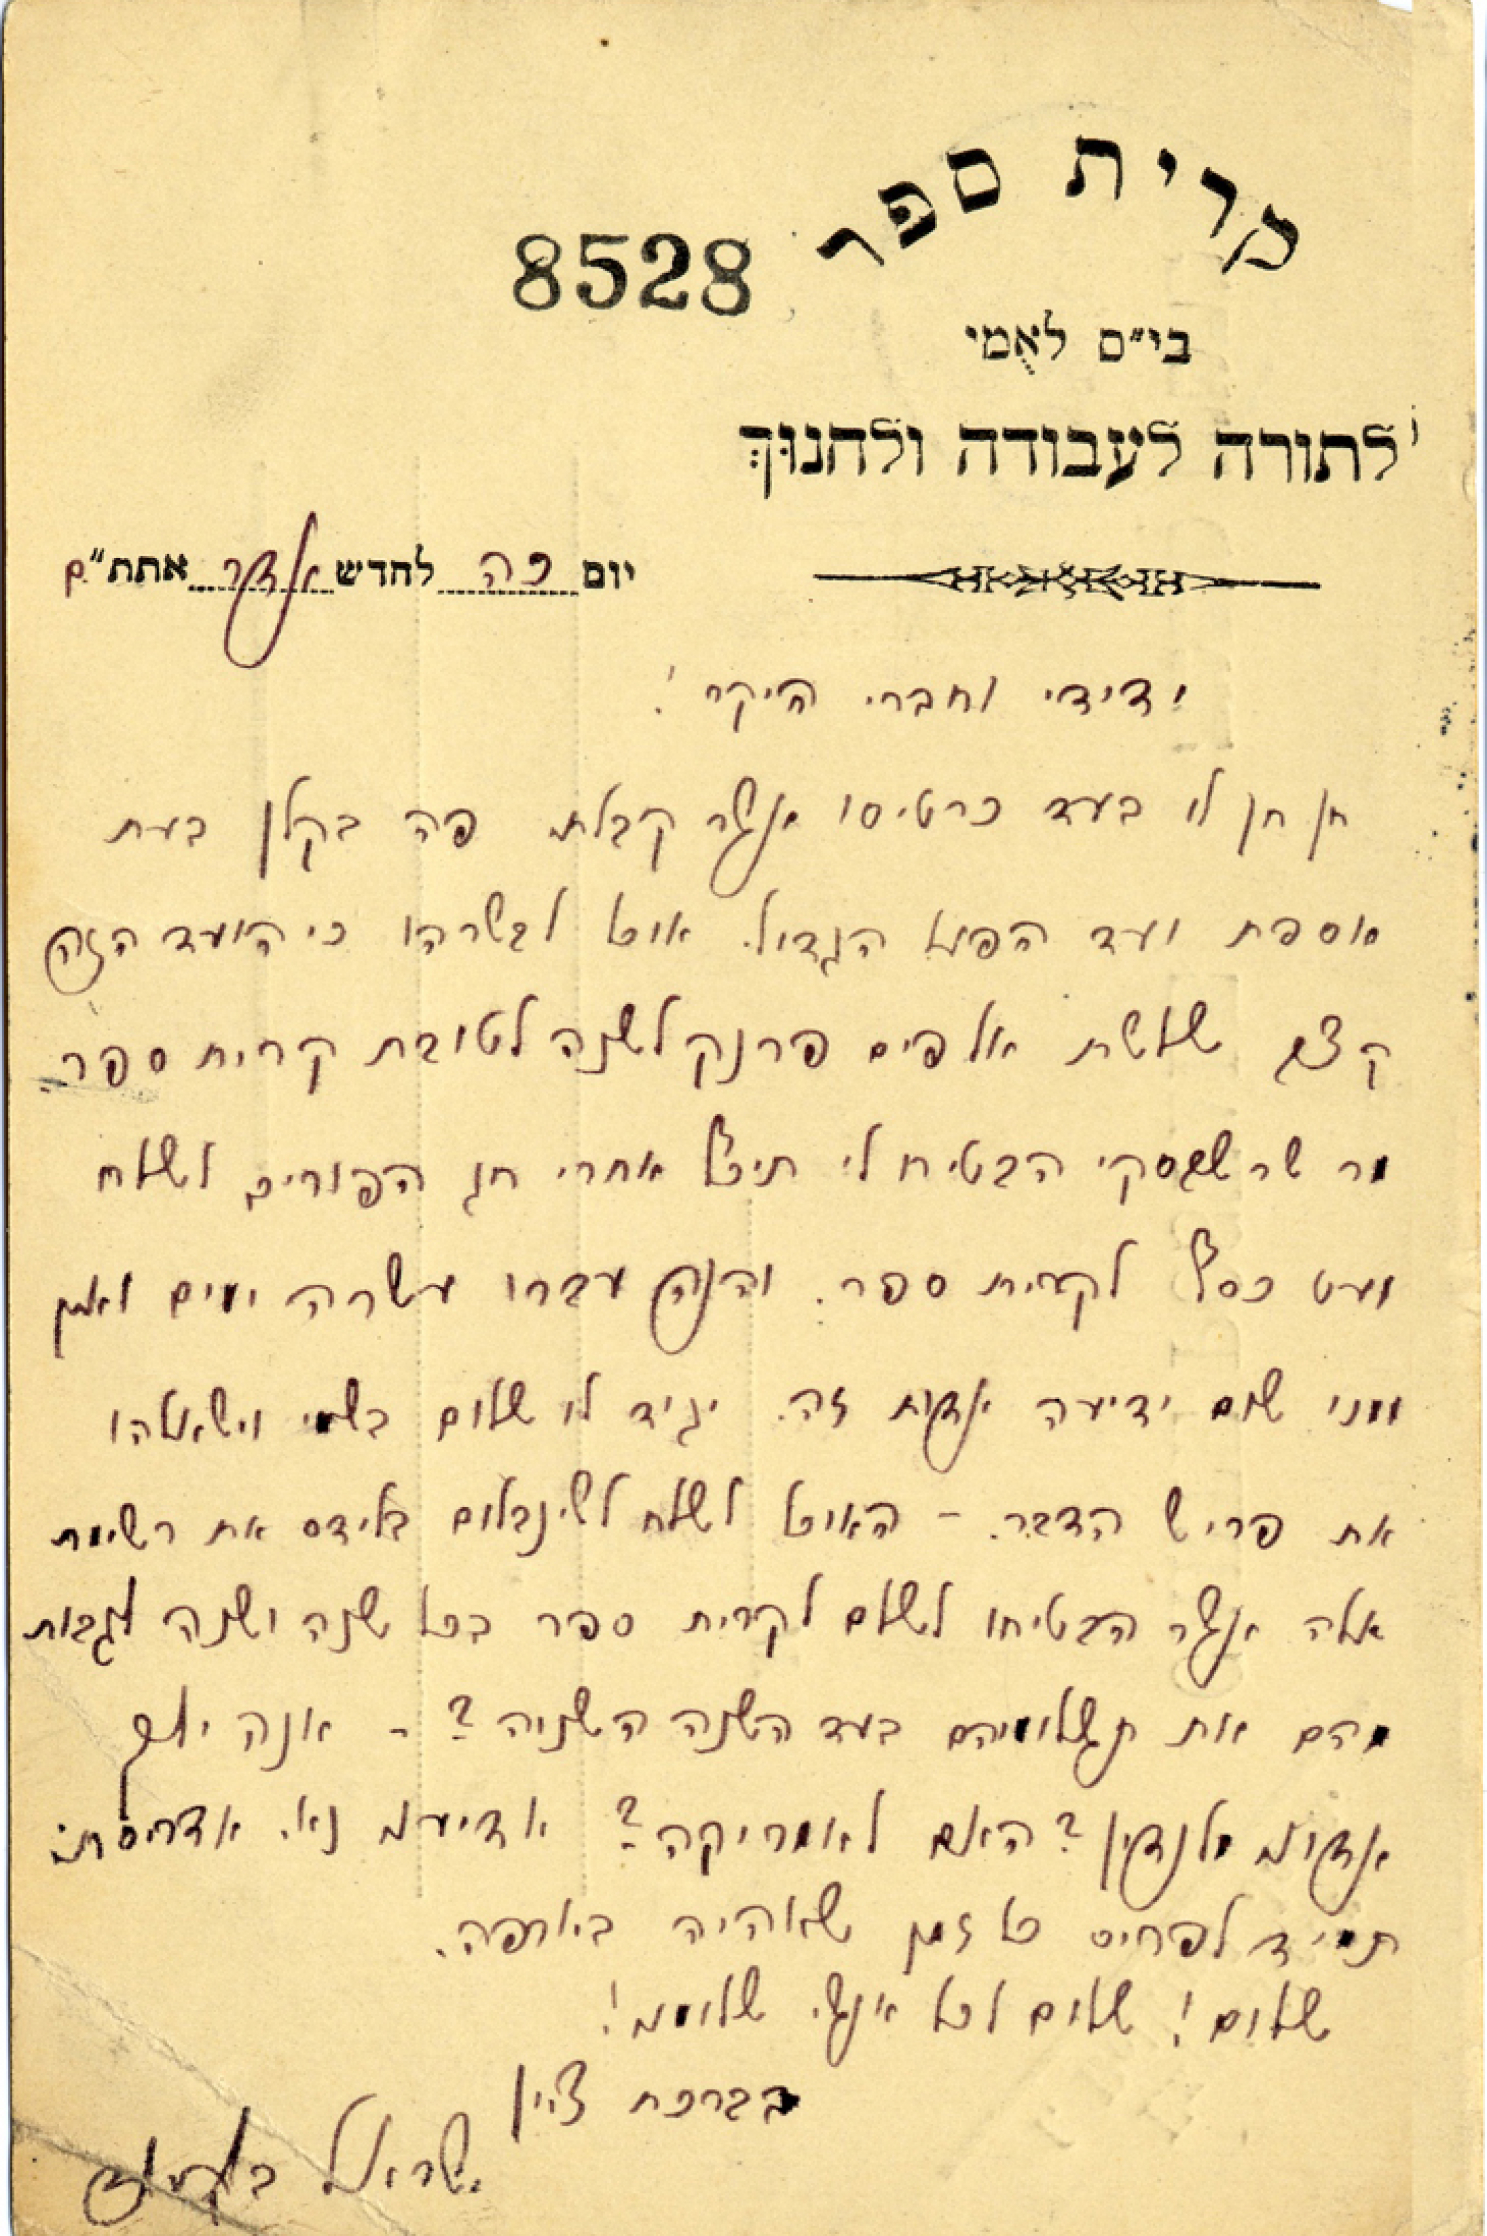 קרית ספר
8528
בי״ס לאֻמי
לתורה לעבודה ולחנוּךְ
יום כה לחדש אדר אתת״ם
ידידי וחברי היקר!
חן חן לו בעד כרטיסו אשר קבלתי פה בקלן בעת
אספת ועד הפועל הגדול. אוכל לבשרהו כי הועד הזה
קצב שלשת אלפים פרנק לשנה לטובת קרית ספר.
מר שרשבסקי הבטיח לי תיכף אחרי חג הפורים לשלח
מעט כסף לקרית ספר. והנה עברו עשרה ימים ואין
ממנו שום ידיעה אדות זה. יגיד לו שלום בשמי וישאלהו
את פריש הדבר. – היואל לשלח לשינבלום בלידס את רשימת
אלה אשר הבטיחו לשלם לקרית ספר בכל שנה ושנה לגבות
מהם את תשלומיהם בעד השנה השניה? – אנה ילך
אדוני מלנדון? האם לאמריקה? אדיעני נא. אדריסתי:
תמיד לפריס כל זמן שאהיה באירפה.
שלום! שלום לכל אנשי שלומנו!
בברכת ציון
ישראל בלקינד